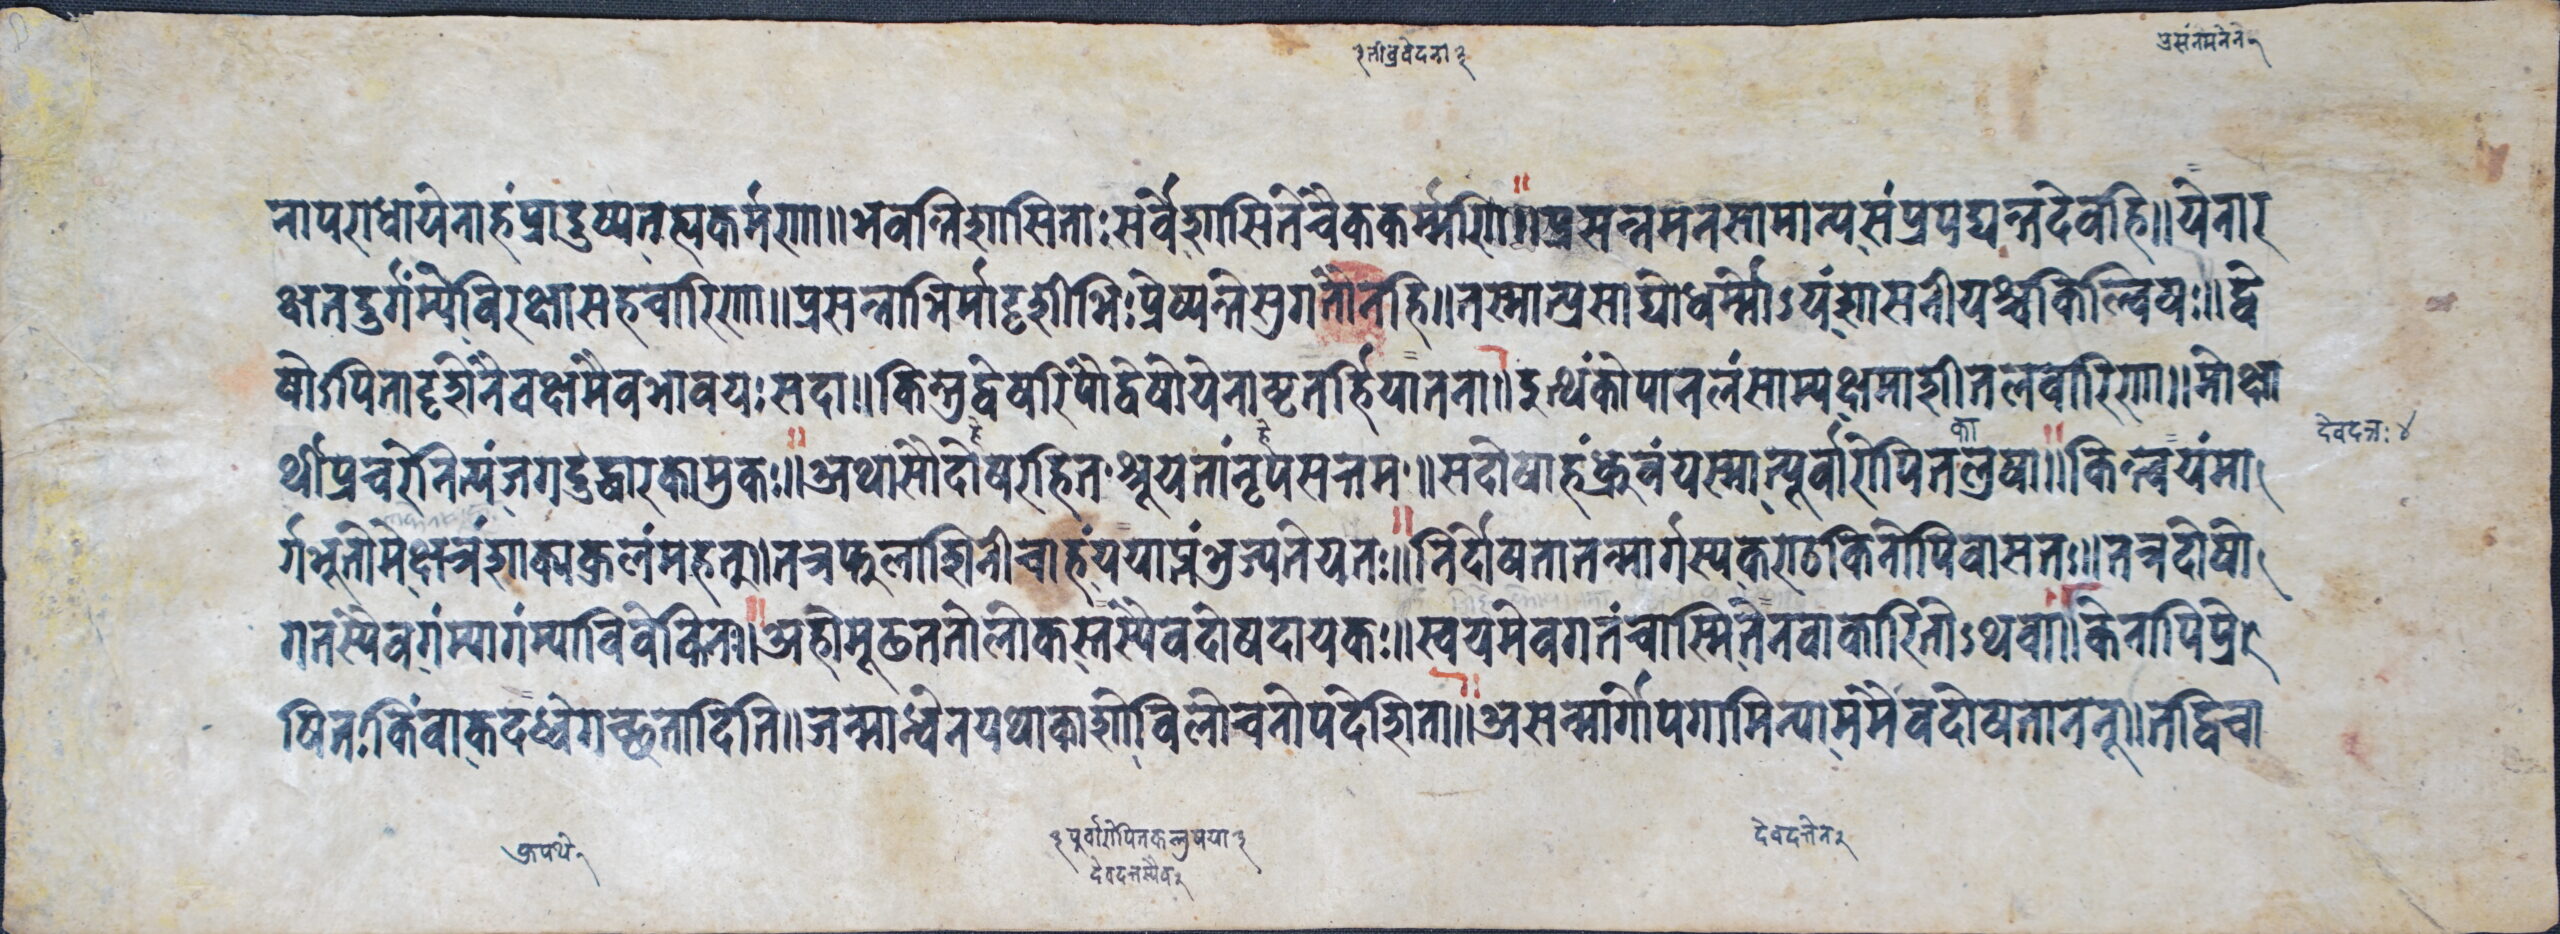 ३तीव्रवेदना३
प्रसंनमनेन२
नापराधायेनाहंप्राडुष्यनत्द्यकर्मणा॥भवन्तिशासिताःसर्वेशासितेचैककर्म्मणि॥प्रसन्नमनसामान्यसंप्रपद्यन्तदेवहि॥येनार
क्षतदुर्गम्यैविरक्षासहचारिणा॥प्रसन्नाभिर्मादृशीभिःप्रेष्यन्तेसुगतौनहि॥तस्मात्प्रसाद्योधर्म्मोऽयंशासनीयश्चकिल्विषः॥द्वे
षोऽपितादृशेनैवक्षमैवभावयःसदा॥किन्तुद्वेषरिपौद्वेषोयेनाष्टतर्हियातना॥इत्थंकोपानलंसाम्यक्षमाशीतलवारिणा॥मोक्षा
र्थीप्रचरेनित्यंजगदुद्धारकामुकः॥अथासौदोषरहितश्रूयतांनृपसत्तम॥सदोषाहंध्रुवंयस्मात्पूर्वारोपितलुषा॥किन्त्वयंमा
का
देवदत्तः४
र्गभूतोमेक्षान्नंशाक्यकुलंमहत्॥तत्रफुलाशिनीचाहंययाप्नंभुज्यतेयतः॥निर्दोषतातन्मार्गस्यकराठकिनोपिवासतः॥तत्रदोषो
गतस्यैवगंम्यागंम्याविवेकिनः॥अहोमूढततोलोकस्तस्यैवदोषदायकः॥स्वयमेवगतंचास्मितेनवाकारितोऽथवा॥केनापिप्रे
षितःकिंवाकदध्वेगच्छतादिति॥जन्मान्धेनयथाकाशोविलोचनोपदेशिता॥असन्मार्गोपगामिन्याममैवदोषतानतु॥तद्विचा
कुपथे२
३पूर्वारोपितकलुषया३
देवदत्तस्यैव२
देवदत्तेन२